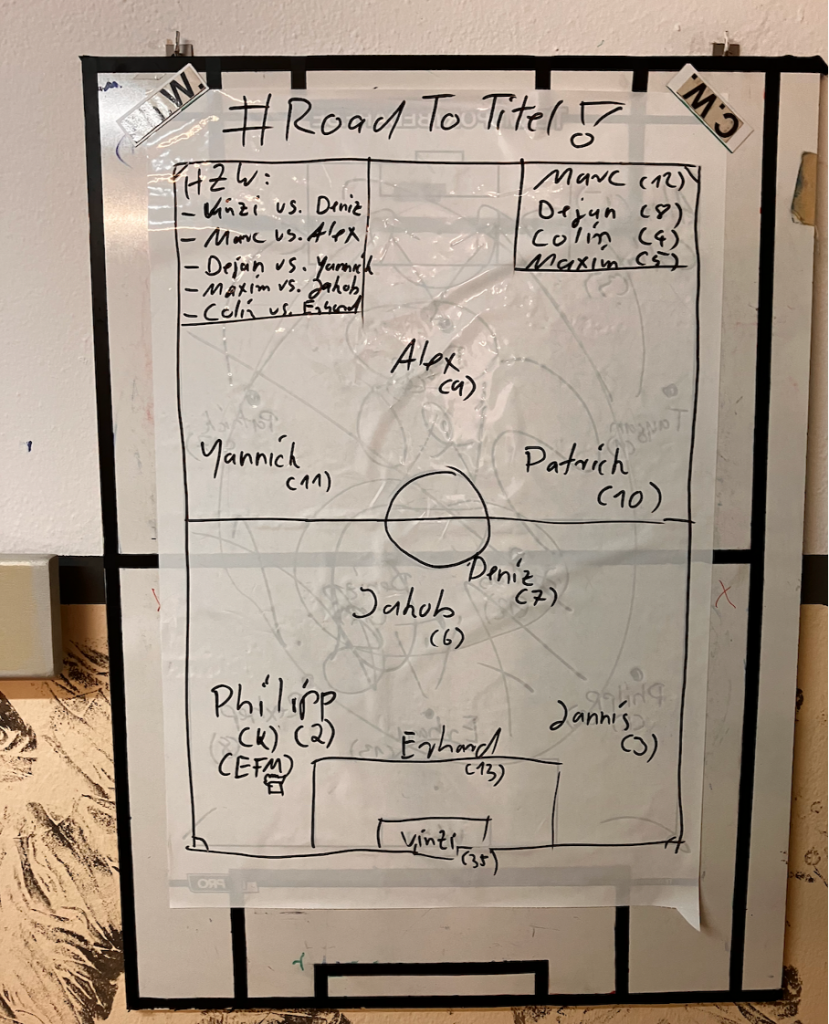 C.W.
# Road To Titel!
HZW:
- Vinzi vs. Deniz
- Marc vs. Alex
- Dejan vs. Yannick
- Maxim vs. Jakob
- Colin vs. Erhard
Marc (12)
Dejan (8)
Colin (4)
Maxim (5)
Alex
(9)
Yannick
(11)
Patrick
(10)
Deniz
(7)
Jakob
(6)
Philipp
(K) (2)
(EFM)
Jannis
(3)
Erhard
(13)
Vinzi
(35)
PRO